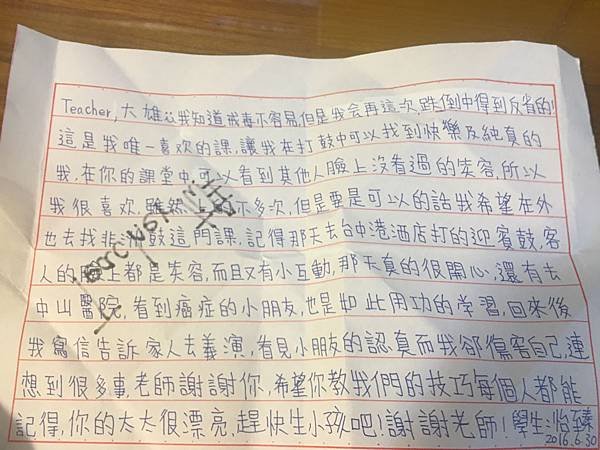 Teacher,大雄 我知道戒毒不容易,但是我會再這次跌倒中得到反省的!
這是我唯一喜欢的課,讓我在打鼓中可以找到快樂及純真的
我,在你的課堂中,可以看到其他人臉上沒看過的笑容,所以
我很喜欢,雖然上 不多次,但是要是可以的話我希望在外
也去找非洲鼓這門課,記得那天去台中港酒店打的迎賓鼓,客
人的臉上都是笑容,而且又有小互動,那天真的很開心,還有去
中山醫院,看到癌症的小朋友,也是如此用功的学習,回來後
我寫信告訴家人去義演,看見小朋友的認真而我卻傷害自己,連
想到很多事,老師謝謝你,希望你教我們的技巧每個人都能
記得,你的太太很漂亮,趕快生小孩吧!謝謝老師!學生:怡臻
2016.6.30